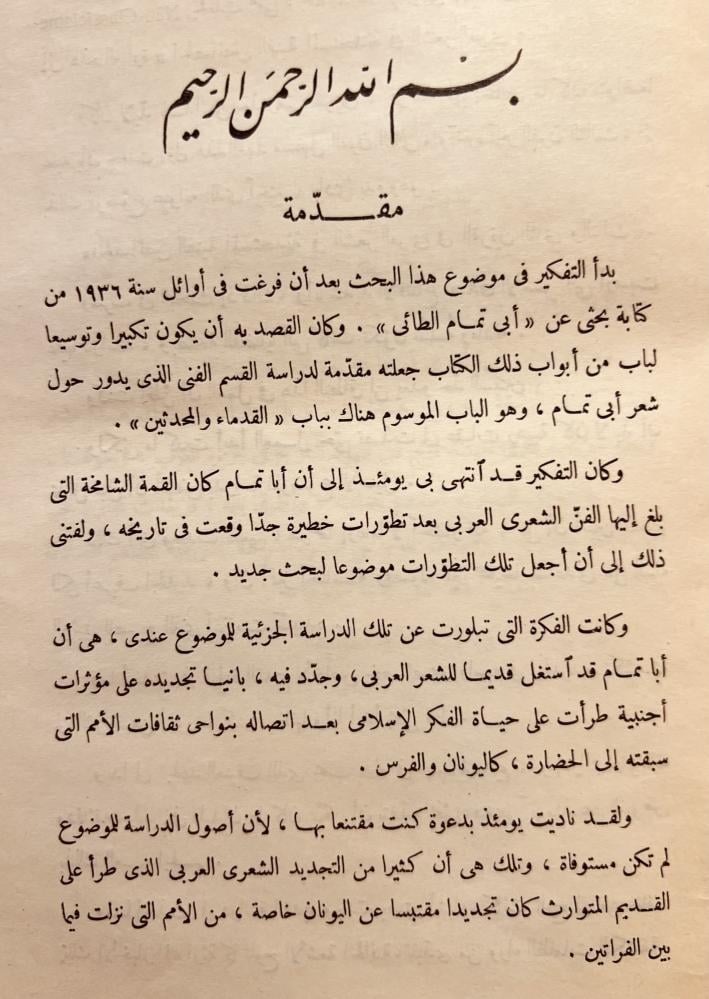 بسم الله الرحمن الرحيم
مقدّمة
بدأ التفكير فى موضوع هذا البحث بعد أن فرغت فى أوائل سنة ١٩٣٦ من
كتابة بحثى عن « أبى تمام الطائى » . وكان القصد به أن يكون تكبيرا وتوسيعا
لباب من أبواب ذلك الكتاب جعلته مقدّمة لدراسة القسم الفنى الذى يدور حول
شعر أبى تمام ، وهو الباب الموسوم هناك بباب « القدماء والمحدثين » .
وكان التفكير قد ٱنتهى بى يومئذ إلى أن أبا تمام كان القمة الشامخة التى
بلغ إليها الفنّ الشعرى العربى بعد تطوّرات خطيرة جدّا وقعت فى تاريخه ، ولفتنى
ذلك إلى أن أجعل تلك التطوّرات موضوعا لبحث جديد .
وكانت الفكرة التى تبلورت عن تلك الدراسة الجزئية للموضوع عندى ، هى أن
أبا تمام قد ٱستغل قديما للشعر العربى، وجدّد فيه ، بانيا تجديده على مؤثرات
أجنبية طرأت على حياة الفكر الإسلامى بعد اتصاله بنواحى ثقافات الأمم التى
سبقته إلى الحضارة ، كاليونان والفرس .
ولقد ناديت يومئذ بدعوة كنت مقتنعا بها ، لأن أصول الدراسة للموضوع
لم تكن مستوفاة ، وتلك هى أن كثيرا من التجديد الشعرى العربى الذى طرأ على
القديم المتوارث كان تجديدا مقتبسا عن اليونان خاصة ، من الأمم التى نزلت فيما
بين الفراتين .